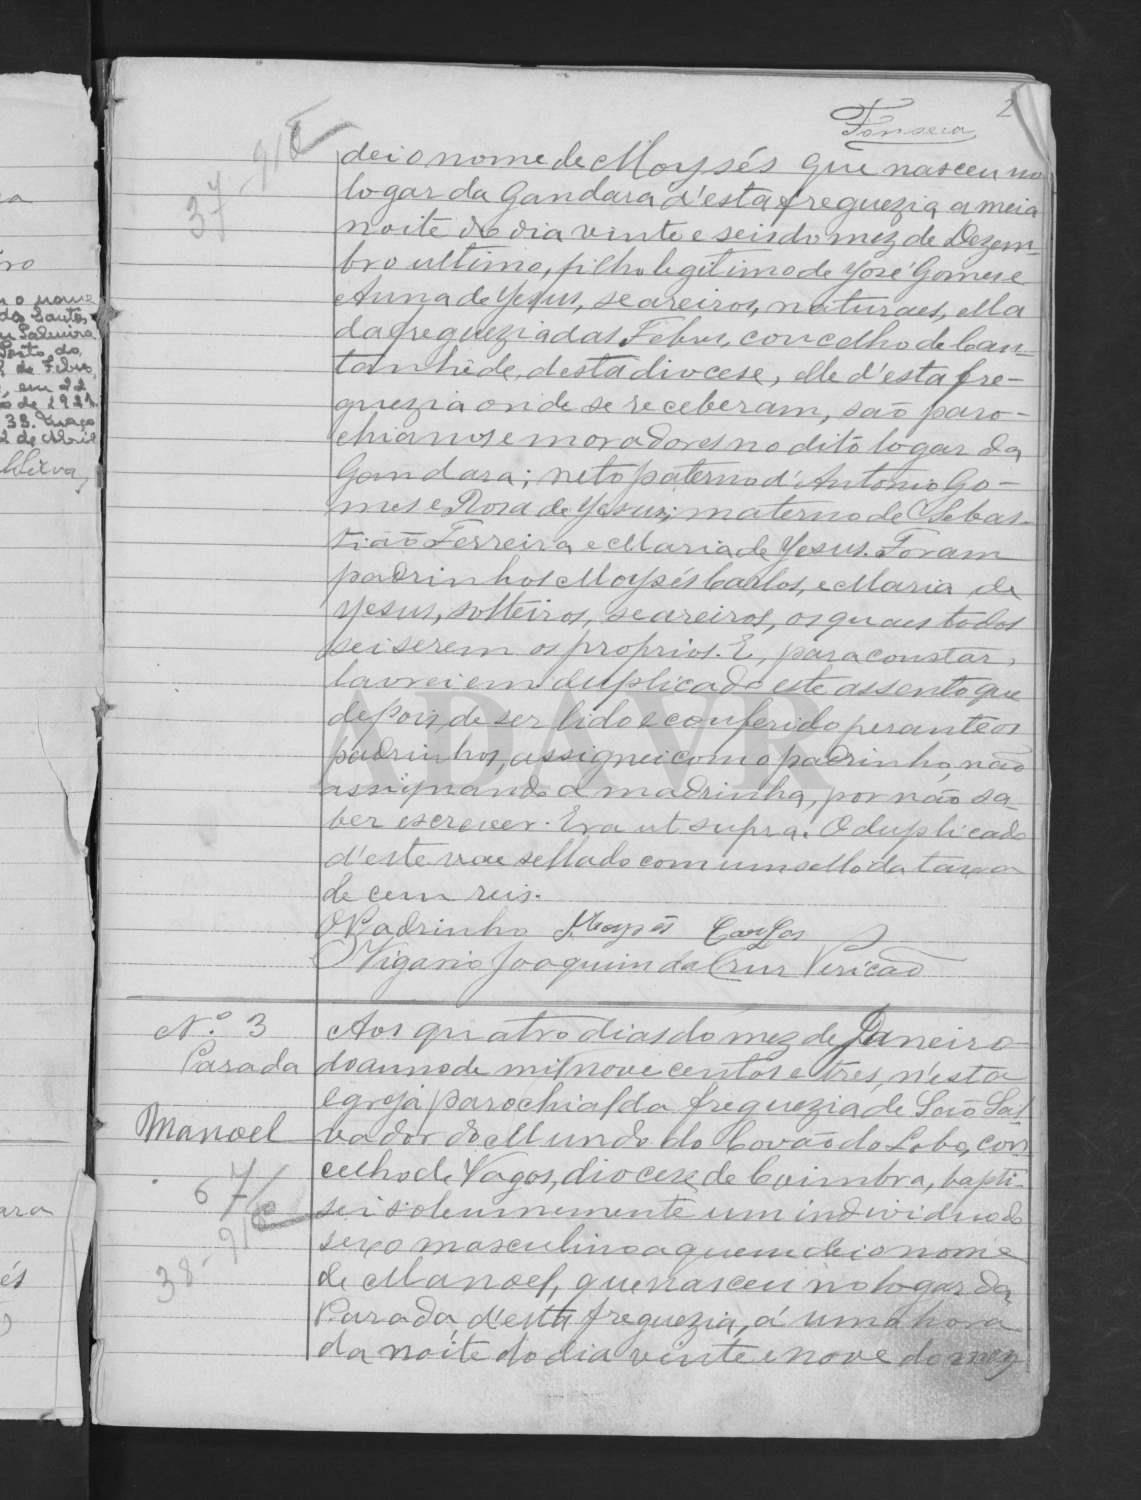 2
Fonseca
dei o nome de Moysés que nasceu no
logar da Gandara d'esta freguezia a meia
noite do dia vinte e seis do mez de Dezem-
bro ultimo, filho legitimo de José Gomes e
Anna de Jesus, seareiros, naturaes, ella
da freguezia das Febres, concelho de Can-
tanhêde, desta diocese, elle d'esta fre-
guezia onde se receberam, são paro-
chianos e moradores no dito logar da
Gandara; neto paterno d'Antonio Go-
mes e Rosa de Jesus; materno de Sebas-
tião Ferreira e Maria de Jesus. Foram
padrinhos Moysés Carlos, e Maria de
Jesus, solteiros, seareiros, os quaes todos
sei serem os proprios. E, para constar,
lavrei em duplicado este assento que
depois, de ser lido e conferido perante os
padrinhos, assignei com o padrinho, não
assignando a madrinha, por não sa-
ber escrever. Era ut supra. O duplicado
d'este vae sellado com um sello da taxa
de cem reis.
O Padrinho Moysés Carlos
O Vigario Joaquim da Cruz Pericão
37
ADAVR
Nº 3
Parada
Manoel
67
38-918
Aos quatro dias do mez de Janeiro
do anno de mil nove centos e tres, n'esta
egreja parochial da freguezia de São Sal-
vador do Mundo do Covão do Lobo, con
celho de Vagos, diocese de Coimbra, bapti-
sei solemnemente um individuo do
sexo masculino a quem dei o nome
de Manoel, que nasceu no logar da
Parada, d'esta freguezia, á uma hora
da noite do dia vinte e nove do mez
em 22
de 1921
2 de Abril
Silva,